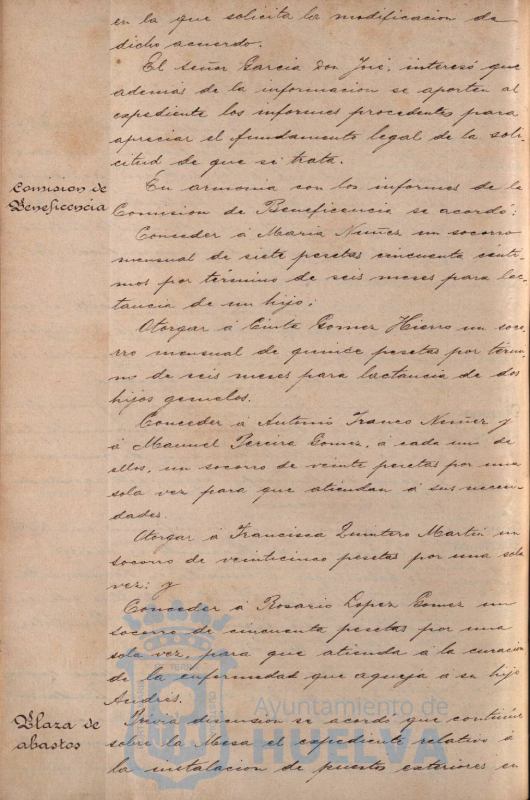 en la que solicita la modificacion de
dicho acuerdo.
El señor Garcia don José, interesó que
ademas de la informacion se aporten al
expediente los informes procedentes para
apreciar el fundamento legal de la soli-
citud de que se trata.
Comision de
Beneficencia
En armonia con los informes de la
Comision de Beneficencia se acordó:
Conceder á Maria Nuñez un socorro
mensual de siete pesetas cincuenta cénti-
mos por término de seis meses para lac-
tancia de un hijo;
Otorgar á Cinta Gomez Hierro un soco-
rro mensual de quince pesetas por térmi-
no de seis meses para lactancia de dos
hijos gemelos.
Conceder á Antonio Franco Nuñez y
á Manuel Pereira Gomez, á cada uno de
ellos, un socorro de veinte pesetas por una
sola vez para que atiendan á sus necesi-
dades.
Otorgar á Francisca Quintero Martin un
socorro de veinticinco pesetas por una sola
vez; y
Conceder á Rosario Lopez Gomez un
socorro de cincuenta pesetas por una
sola vez, para que atienda á la curacion
de la enfermedad que aqueja á su hijo
Andrés.
Plaza de
abastos
Prévia discusion se acordó que continúe
sobre la Mesa el expediente relativo á
la instalacion de puestos exteriores en
Ayuntamiento de
HUELVA